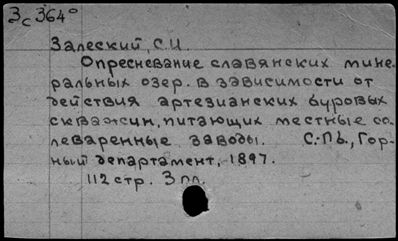 3с364°
Залеский, С.И.
Опресневание славянских мине-
ральных озер. в зависимости от
действия артезианских буровых
скважин, питающих местные со-
леваренные заводы. С.-Пб., Гор-
ный департамент, 1897.
112 стр. 3 пл.